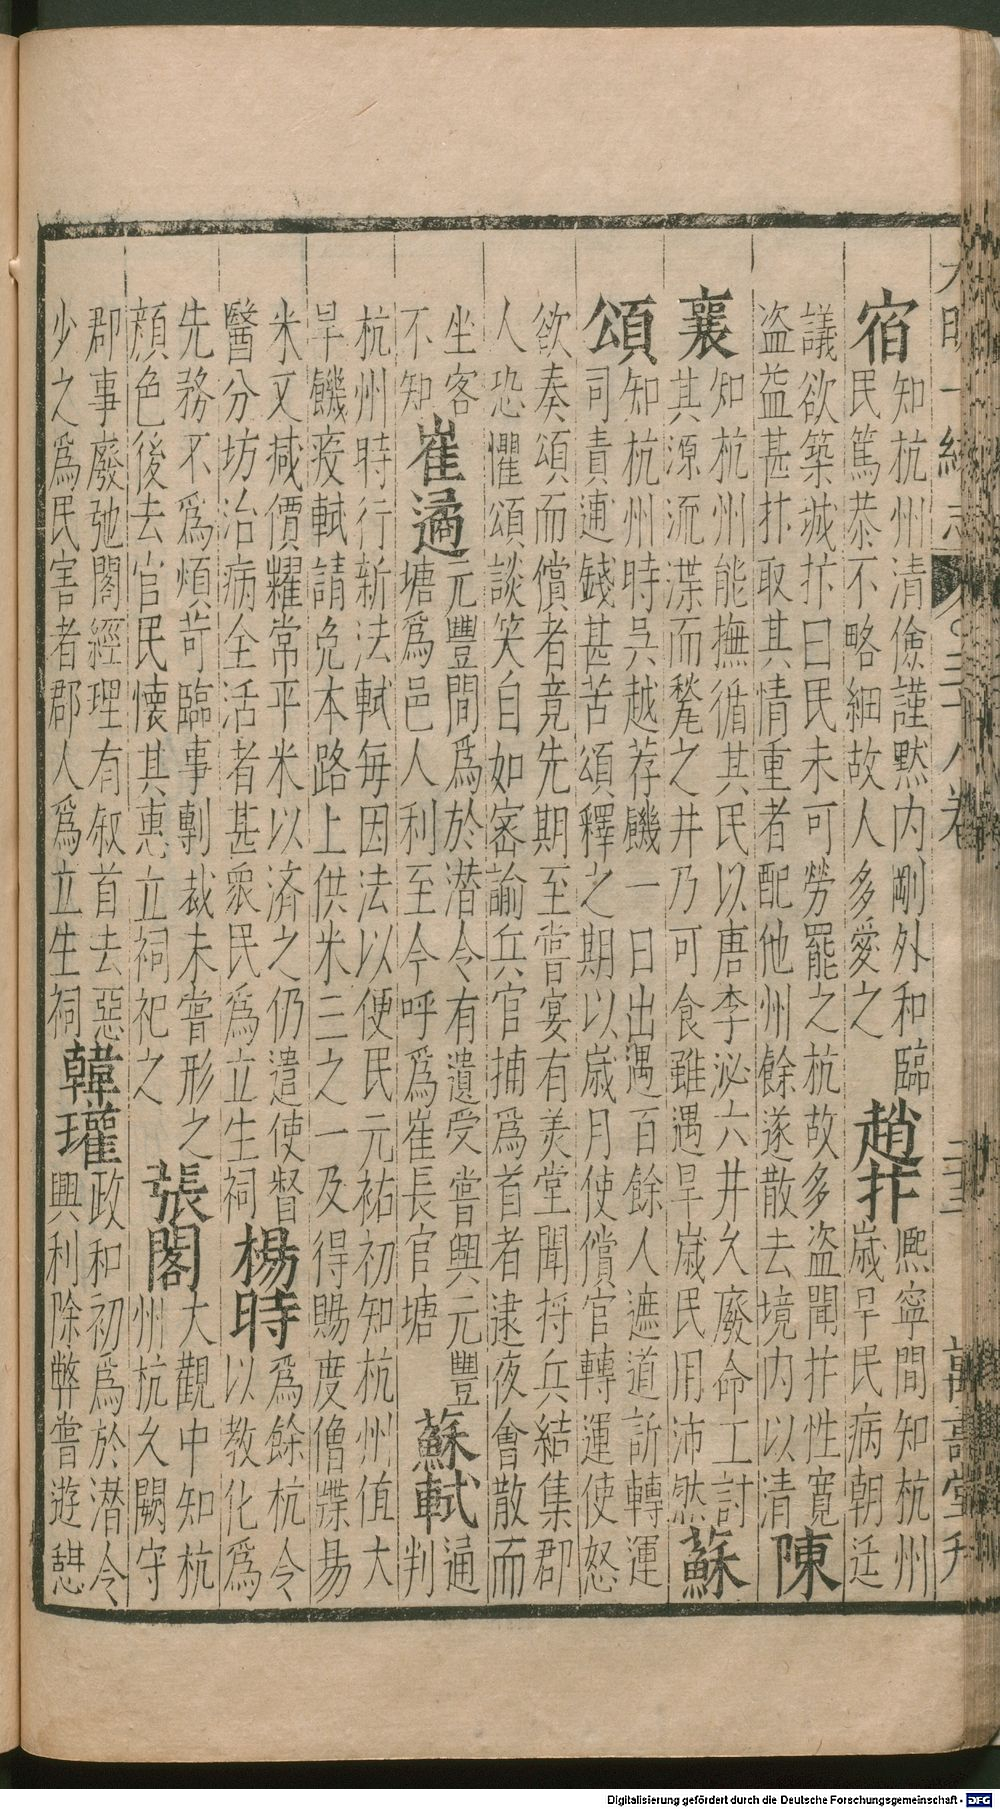 大明一統志 三十八卷 三十二 萬壽堂刋
宿
知杭州清儉謹默内剛外和臨
民篤恭不略細故人多愛之
趙抃
熈寧間知杭州
歲旱民病朝廷
議欲築城抃曰民未可勞罷之杭故多盗聞抃性寛
盗益甚抃取其情重者配他州餘遂散去境内以清
陳
襄
知杭州能撫循其民以唐李泌六井久廢命工討
其源流渫而甃之井乃可食雖遇旱歲民用沛然
蘇
頌
知杭州時吳越荐饑一日出遇百餘人遮道訴轉運
司責逋錢甚苦頌釋之期以歲月使償官轉運使怒
欲奏頌而償者竟先期至嘗宴有美堂聞捋兵結集郡
人恐懼頌談笑自如宻諭兵官捕爲首者逮夜會散而
坐客
不知
崔遹
元豐間爲於潜令有遺受嘗興元豐
塘爲邑人利至今呼爲崔長官塘
蘇軾
通
判
杭州時行新法軾每因法以便民元祐初知杭州值大
旱饑疫軾請免本路上供米三之一及得賜度僧牒易
米又減價糶常平米以濟之仍遣使督
醫分坊治病全活者甚衆民爲立生祠
楊時
爲餘杭令
以教化爲
先務不爲煩苛臨事剸裁未嘗形之
顔色後去官民懷其惠立祠祀之
張閣
大觀中知杭
州杭久闕守
郡事廢弛閣經理有叙首去惡
少之爲民害者郡人爲立生祠
韓瓘
政和初爲於潜令
興利除弊嘗遊憩
Digitalisierung gefördert durch die Deutsche Forschungsgemeinschaft - DFG